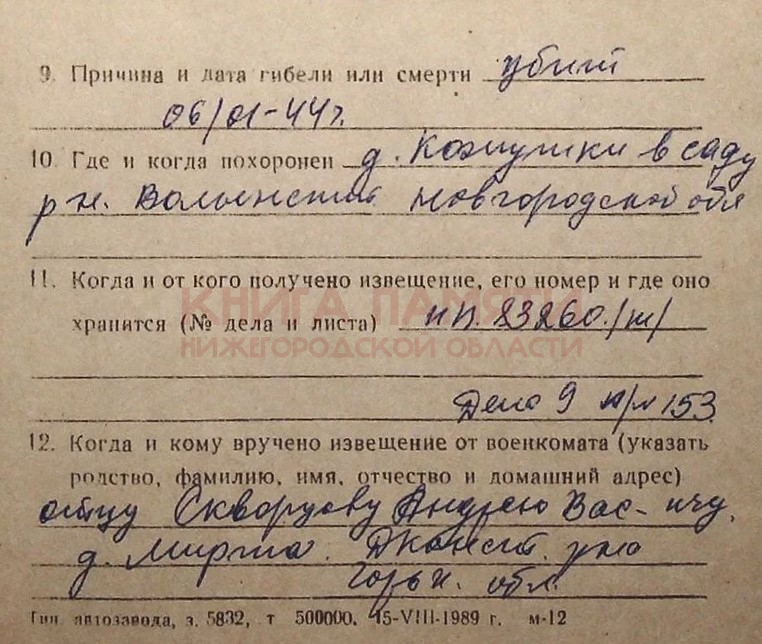 9. Причина и дата гибели или смерти убит
06/01-44г.
10. Где и когда похоронен д. в саду
р н. Новгородской обл
11. Когда и от кого получено извещение, его номер и где оно
КНИГА ПАМЯТИ
хранится (№ дела и листа) 23260./
НИЖЕГОРОДСКОЙ ОБЛАСТИ
Дело 9 153
12. Когда и кому вручено извещение от военкомата (указать
родство, фамилию, имя, отчество и домашний адрес)
отцу Скворцову Андрею Вас-ичу.
д.
обл.
Тип. автозавода, з. 5832, т 500000. 15-VIII-1989 г. м-12